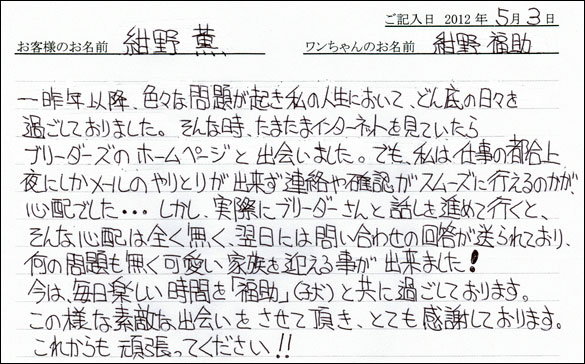 ご記入日 2012年 5月 3日
お客様のお名前 紺野 薫 ワンちゃんのお名前 紺野 福助
一昨年以降、色々な問題が起き私の人生において、どん底の日々を
過ごしておりました。そんな時、たまたまインターネットを見ていたら
ブリーダーズのホームページと出会いました。でも、私は仕事の都合上
夜にしかメールのやりとりが出来ず連絡や確認がスムーズに行えるのかが、
心配でした・・・しかし、実際にブリーダーさんと話しを進めて行くと、
そんな心配は全く無く、翌日には問い合わせの回答が送られており、
何の問題も無く可愛い家族を迎える事が出来ました!
今は、毎日楽しい時間を「福助」(子犬)と共に過ごしております。
この様な素敵な出会いをさせて頂き、とても感謝しております。
これからも頑張ってください!!